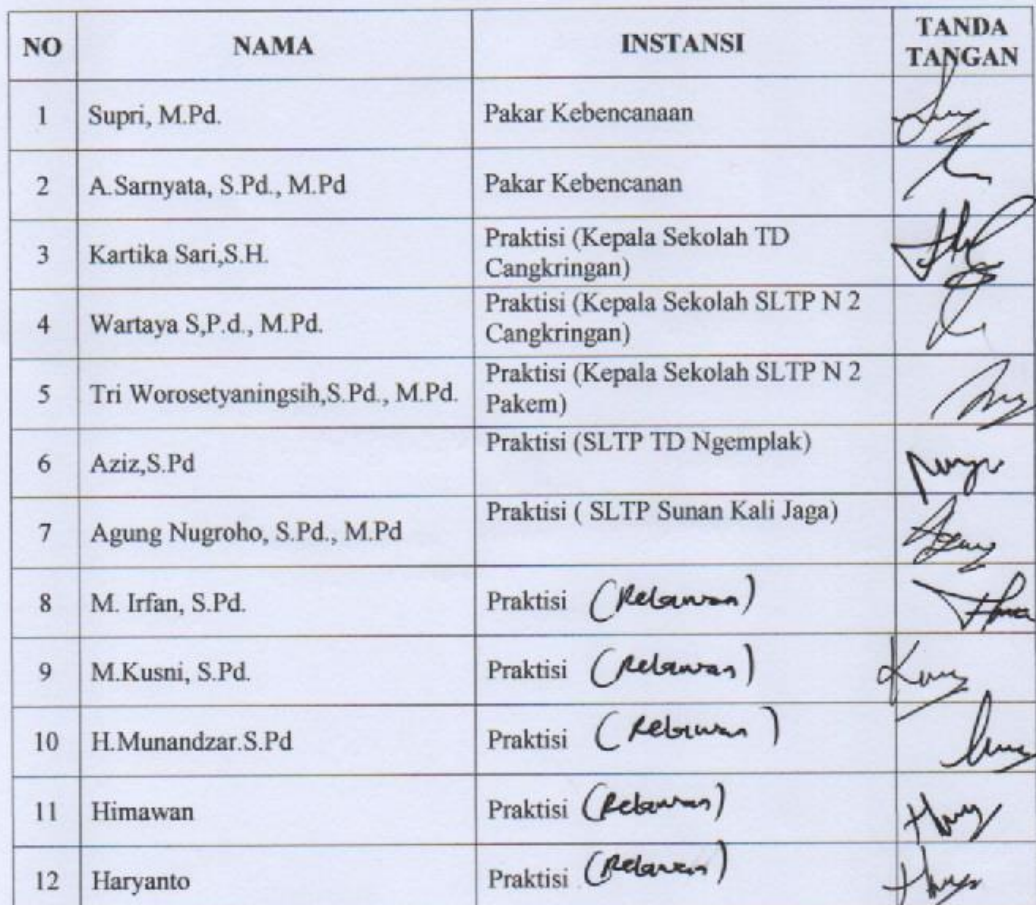 NO NAMA INSTANSI TANDA TANGAN
1 Supri, M.Pd. Pakar Kebencanaan
2 A.Sarnyata, S.Pd., M.Pd Pakar Kebencanan
3 Kartika Sari,S.H. Praktisi (Kepala Sekolah TD
Cangkringan)
4 Wartaya S,P.d., M.Pd. Praktisi (Kepala Sekolah SLTP N 2
Cangkringan)
5 Tri Worosetyaningsih,S.Pd., M.Pd. Praktisi (Kepala Sekolah SLTP N 2
Pakem)
6 Aziz,S.Pd Praktisi (SLTP TD Ngemplak)
7 Agung Nugroho, S.Pd., M.Pd Praktisi ( SLTP Sunan Kali Jaga)
8 M. Irfan, S.Pd. Praktisi (Relawan)
9 M.Kusni, S.Pd. Praktisi (Relawan)
10 H.Munandzar.S.Pd Praktisi (Relawan)
11 Himawan Praktisi (Relawan)
12 Haryanto Praktisi (Relawan)